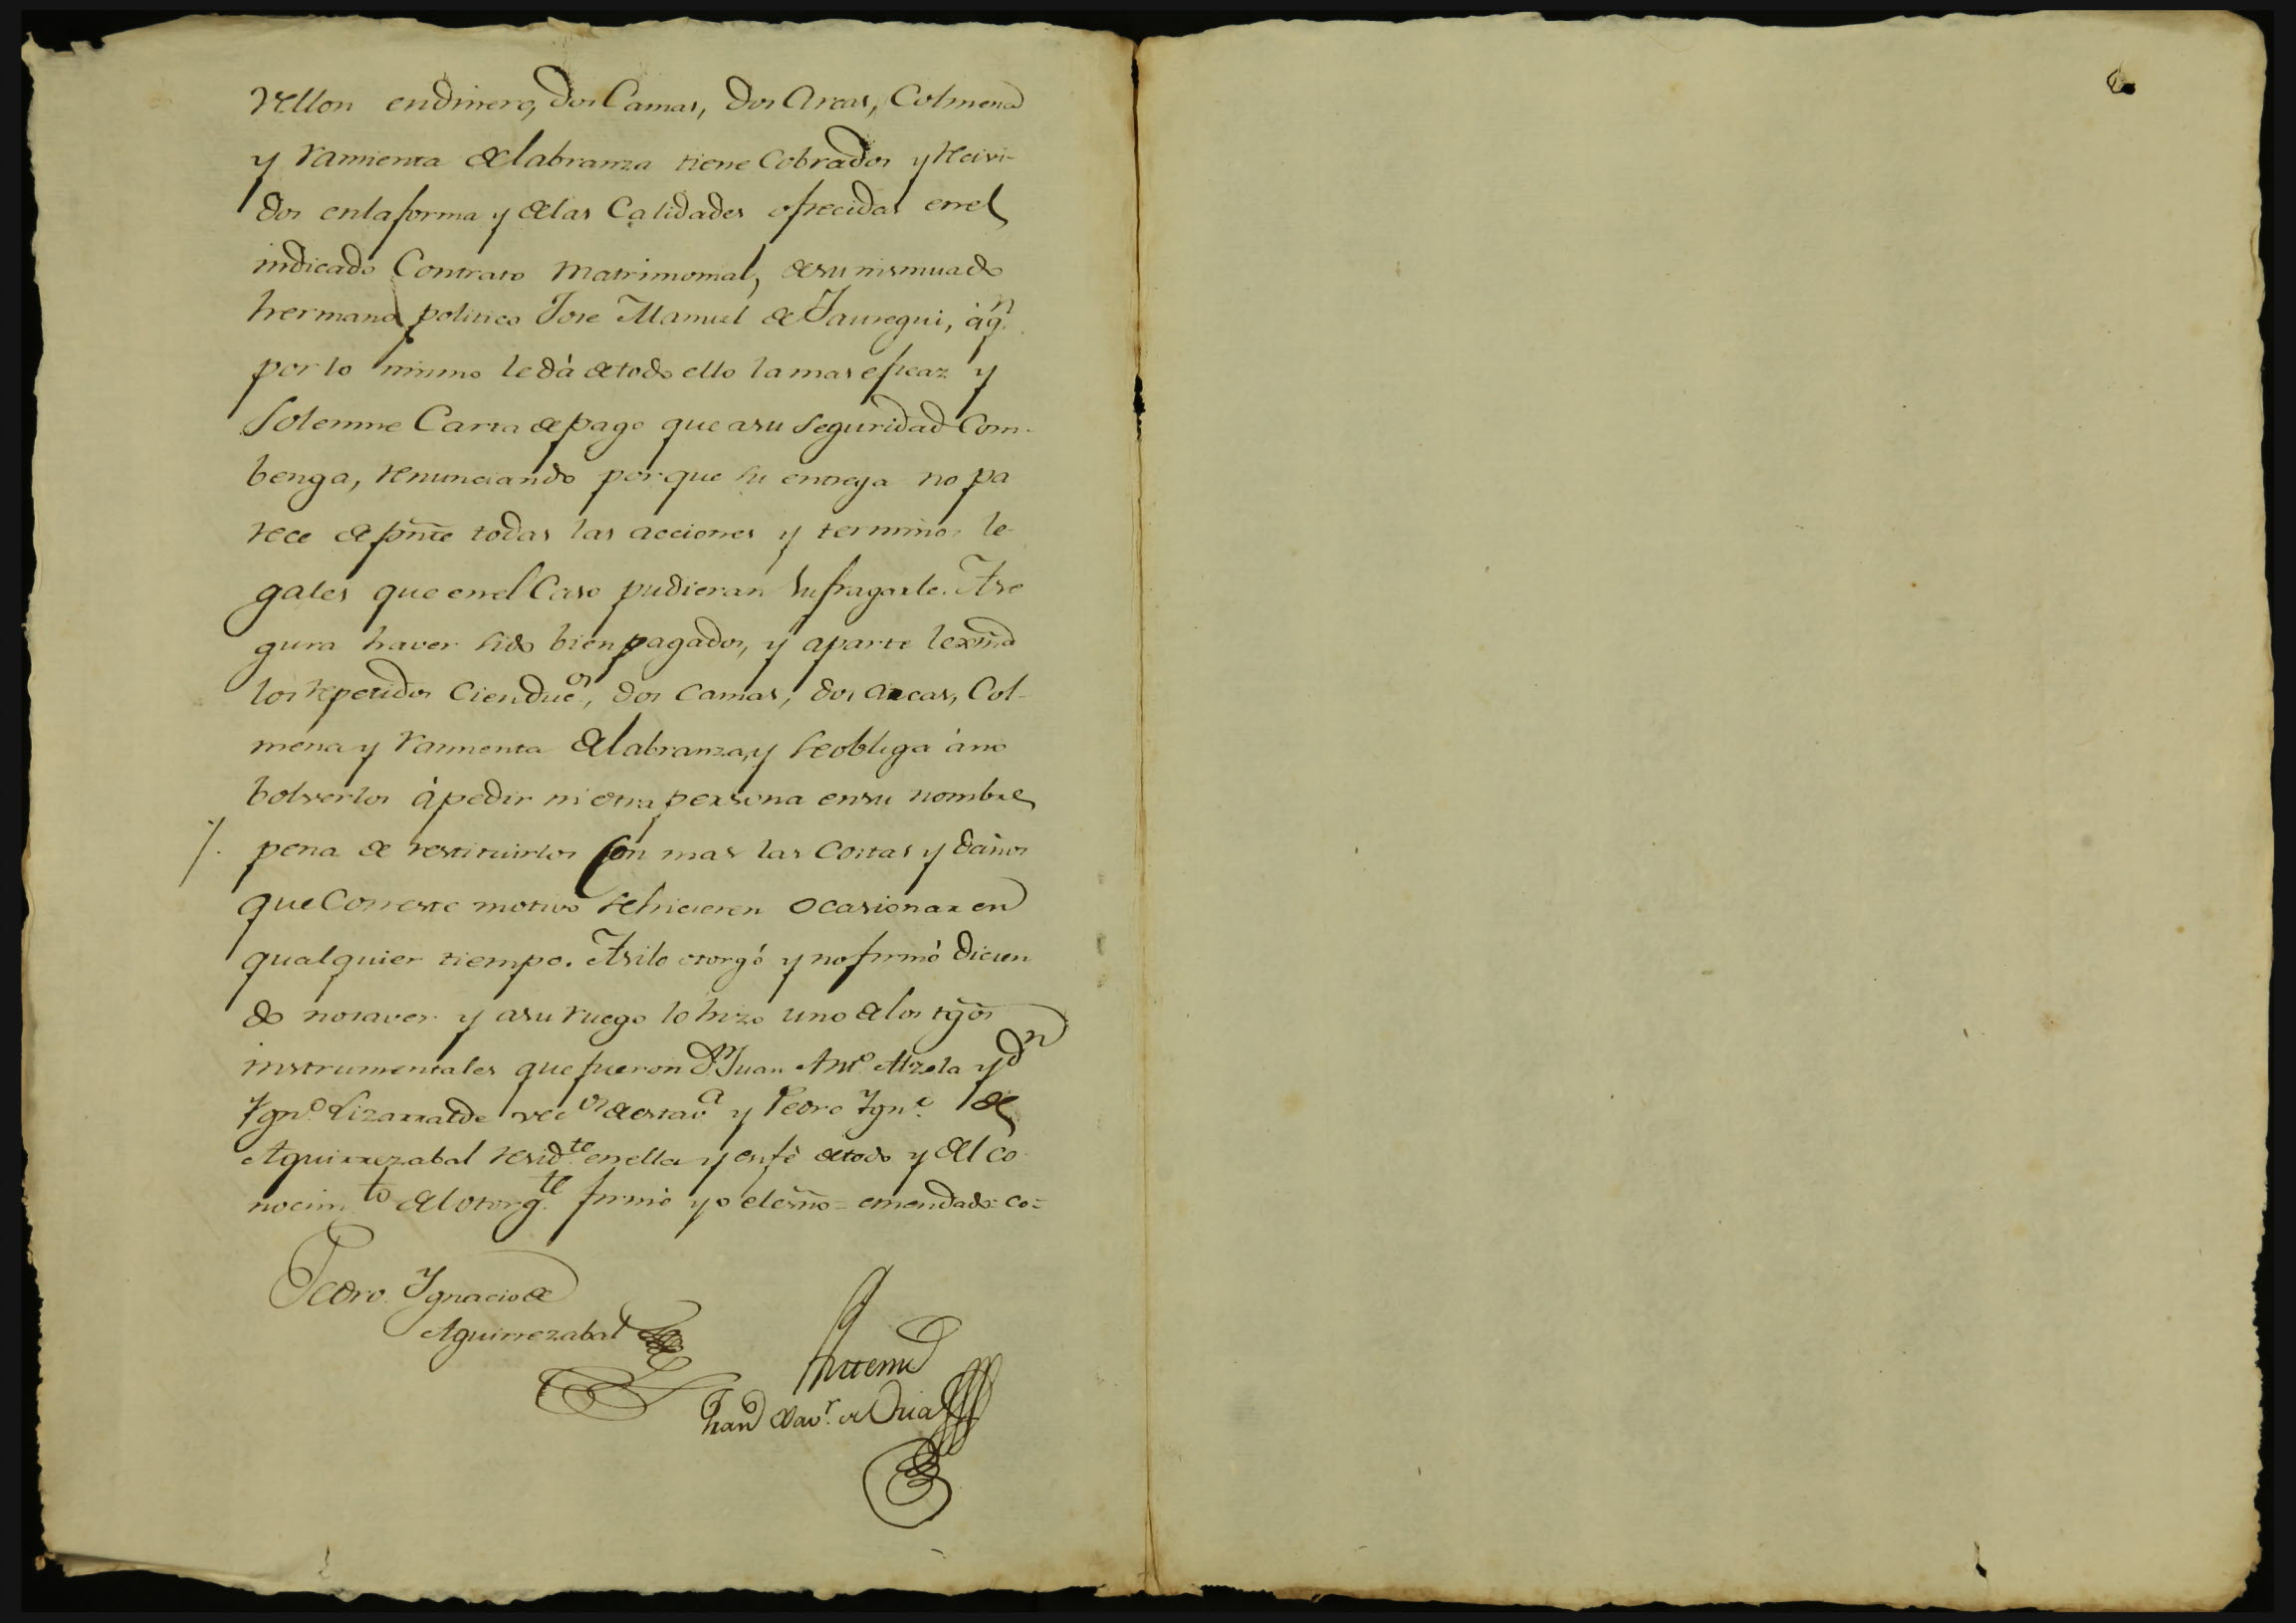 vellon en dinero, dos Camas, dos Arcas, Colmena
y ramienta de labranza tiene Cobrados y recivi-
dos en la forma y de las Calidades ofrecidas en el
indicado Contrato Matrimonial, de su insinuado
hermano politico Jose Manuel de Jauregui, á qn
por lo mismo le dá de todo ello la mas eficaz y
Solemne Carta de pago que a su seguridad Com-
benga, renunciando por que su entrega no pa
rece de pñte todas las acciones y terminos le-
gales que en el Caso pudieran sufragarle. Ase
gura haver sido bien pagados, y a parte lexma
los repetidos Cien ducos, dos Camas, dos arcas, Col-
mena y ramienta de labranza, y se obliga á no
bolverlos á pedir ni otra persona en su nombre
pena de restituirlos Con mas las Costas y daños
que Con este motivo se hicieren ocasionar en
qualquier tiempo. Asi lo otorgó y no firmó dicien
do no saver y a su ruego lo hizo uno de los tgos
instrumentales que fueron Dn Juan Anto Alzola y Dn
Ygno Lizarralde vecos de esta va y Pedro Ygno de
Aguirrezabal residte en ella y en fé de todo y del co-
nocimto del otorgte firmé yo el esno = emendado = co =
Pedro Ygnacio de
Aguirrezabal
Ante mi
Xavr de Oria